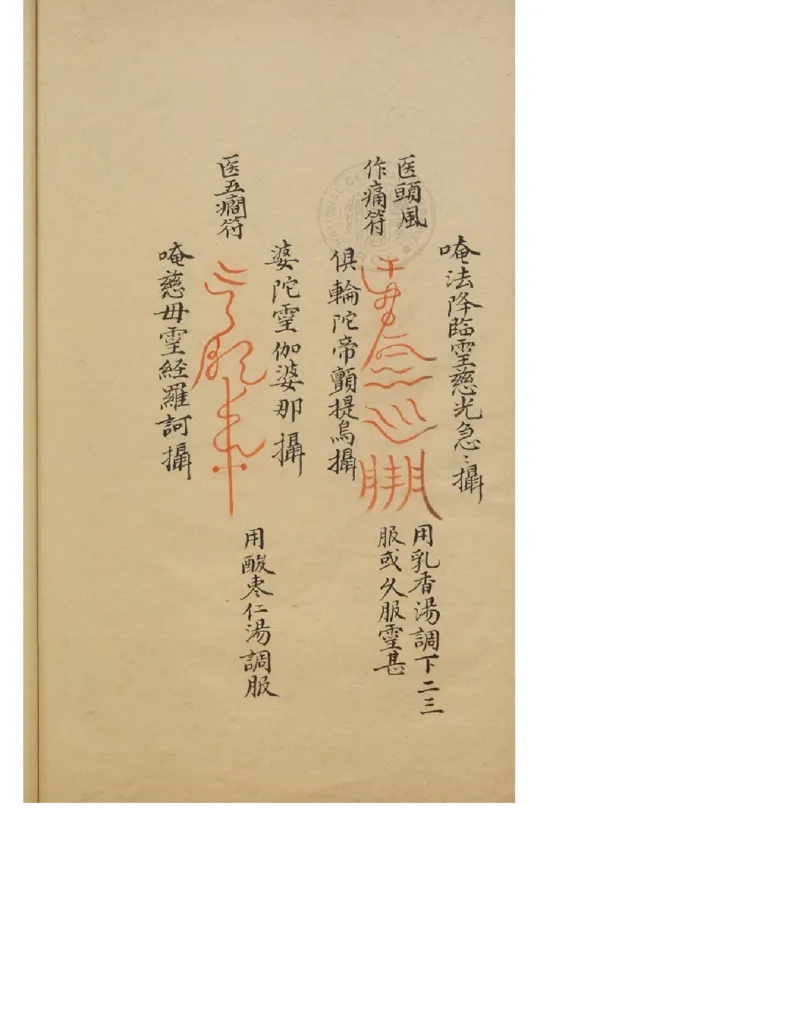 医頭風
作痛符
唵法降臨霊慈光急〻攝
俱輪陀帝顫提烏攝
用乳香湯調下二三
服或久服霊甚
医五癇符
婆陀霊伽婆那攝
唵慈母霊経羅訶攝
用酸枣仁湯調服